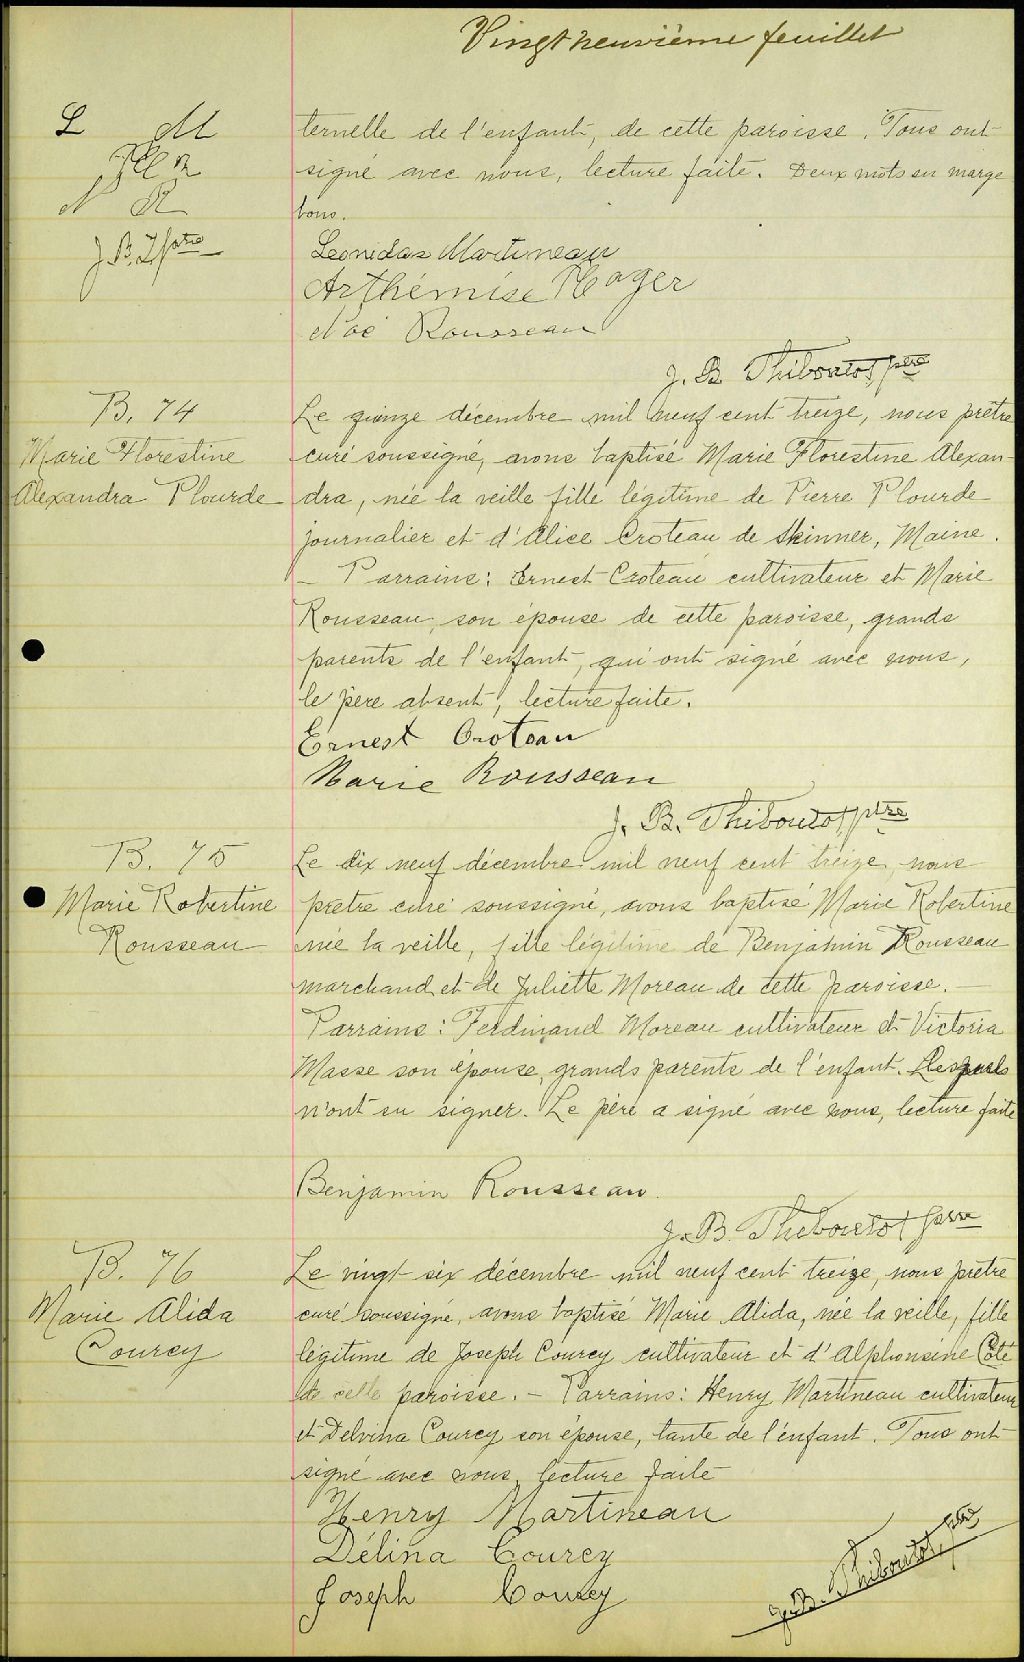 Vingt neuvième feuillet
L M
N R
ternelle de l'enfant, de cette paroisse. Tous ont
signé avec nous, lecture faite. Deux mots en marge
bons.
Leonidas Martineau
Arthémise Roger
Noé Rousseau
J. B. Thiboutot, ptre
B. 74
Marie Florestine
Alexandra Plourde
Le quinze décembre mil neuf cent treize, nous prêtre
curé soussigné, avons baptisé Marie Florestine Alexan-
dra, née la veille fille légitime de Pierre Plourde
journalier et d'Alice Croteau de Skinner, Maine.
— Parrains: Ernest Croteau cultivateur et Marie
Rousseau, son épouse de cette paroisse, grands
parents de l'enfant, qui ont signé avec nous,
le père absent, lecture faite.
Ernest Croteau
Marie Rousseau
J. B. Thiboutot, ptre
B. 75
Marie Robertine
Rousseau
Le dix neuf décembre mil neuf cent treize, nous
prêtre curé soussigné, avons baptisé Marie Robertine
née la veille, fille légitime de Benjamin Rousseau
marchand et de Juliette Moreau de cette paroisse. —
Parrains: Ferdinand Moreau cultivateur et Victoria
Masse son épouse, grands parents de l'enfant. Lesquels
n'ont su signer. Le père a signé avec nous, lecture faite
Benjamin Rousseau.
J. B. Thiboutot ptre
B. 76
Marie Alida
Courcy
Le vingt six décembre mil neuf cent treize, nous prêtre
curé soussigné, avons baptisé Marie Alida, née la veille, fille
légitime de Joseph Courcy cultivateur et d'Alphonsine Côté
de cette paroisse. — Parrains: Henry Martineau cultivateur
et Delvina Courcy son épouse, tante de l'enfant. Tous ont
signé avec nous, lecture faite
Henry Martineau
Délina Courcy
Joseph Courcy
J. B. Thiboutot, ptre